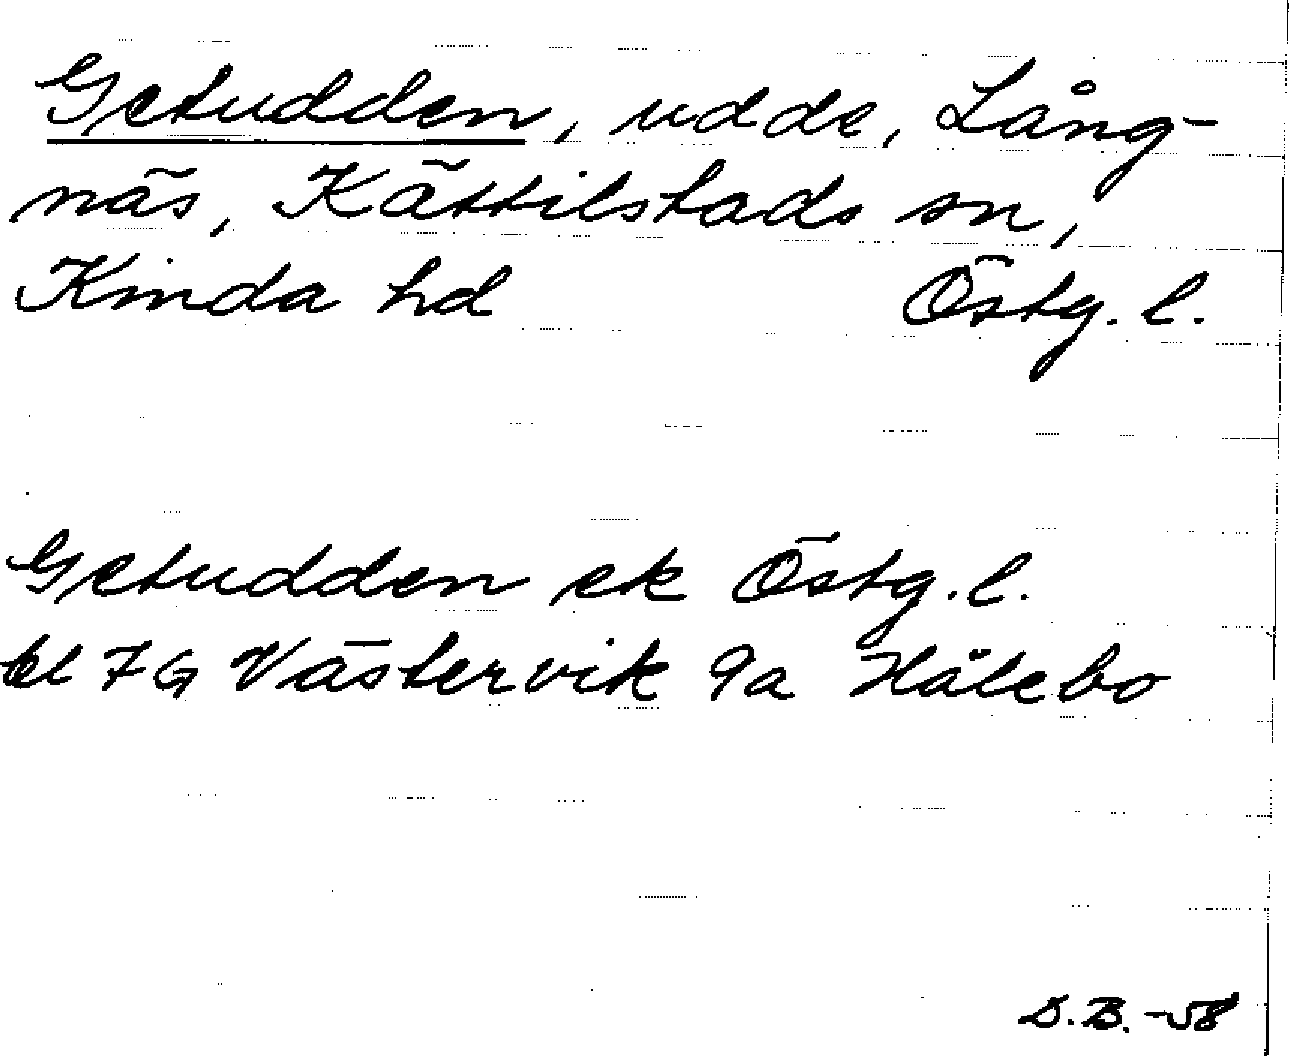 Getudden, udde, Lång-
näs, Kättilstads sn,
Kinda hd Östg. l.
Getudden ek Östg. l.
bl 7G Västervik 9a Hälebo
D.B. -58